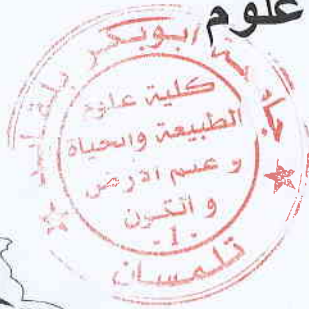 علوم
جامعة ابوبكر بلقايد
كلية علوم
الطبيعة والحياة
و علم الارض
و الكون
- 1 -
تلمسان